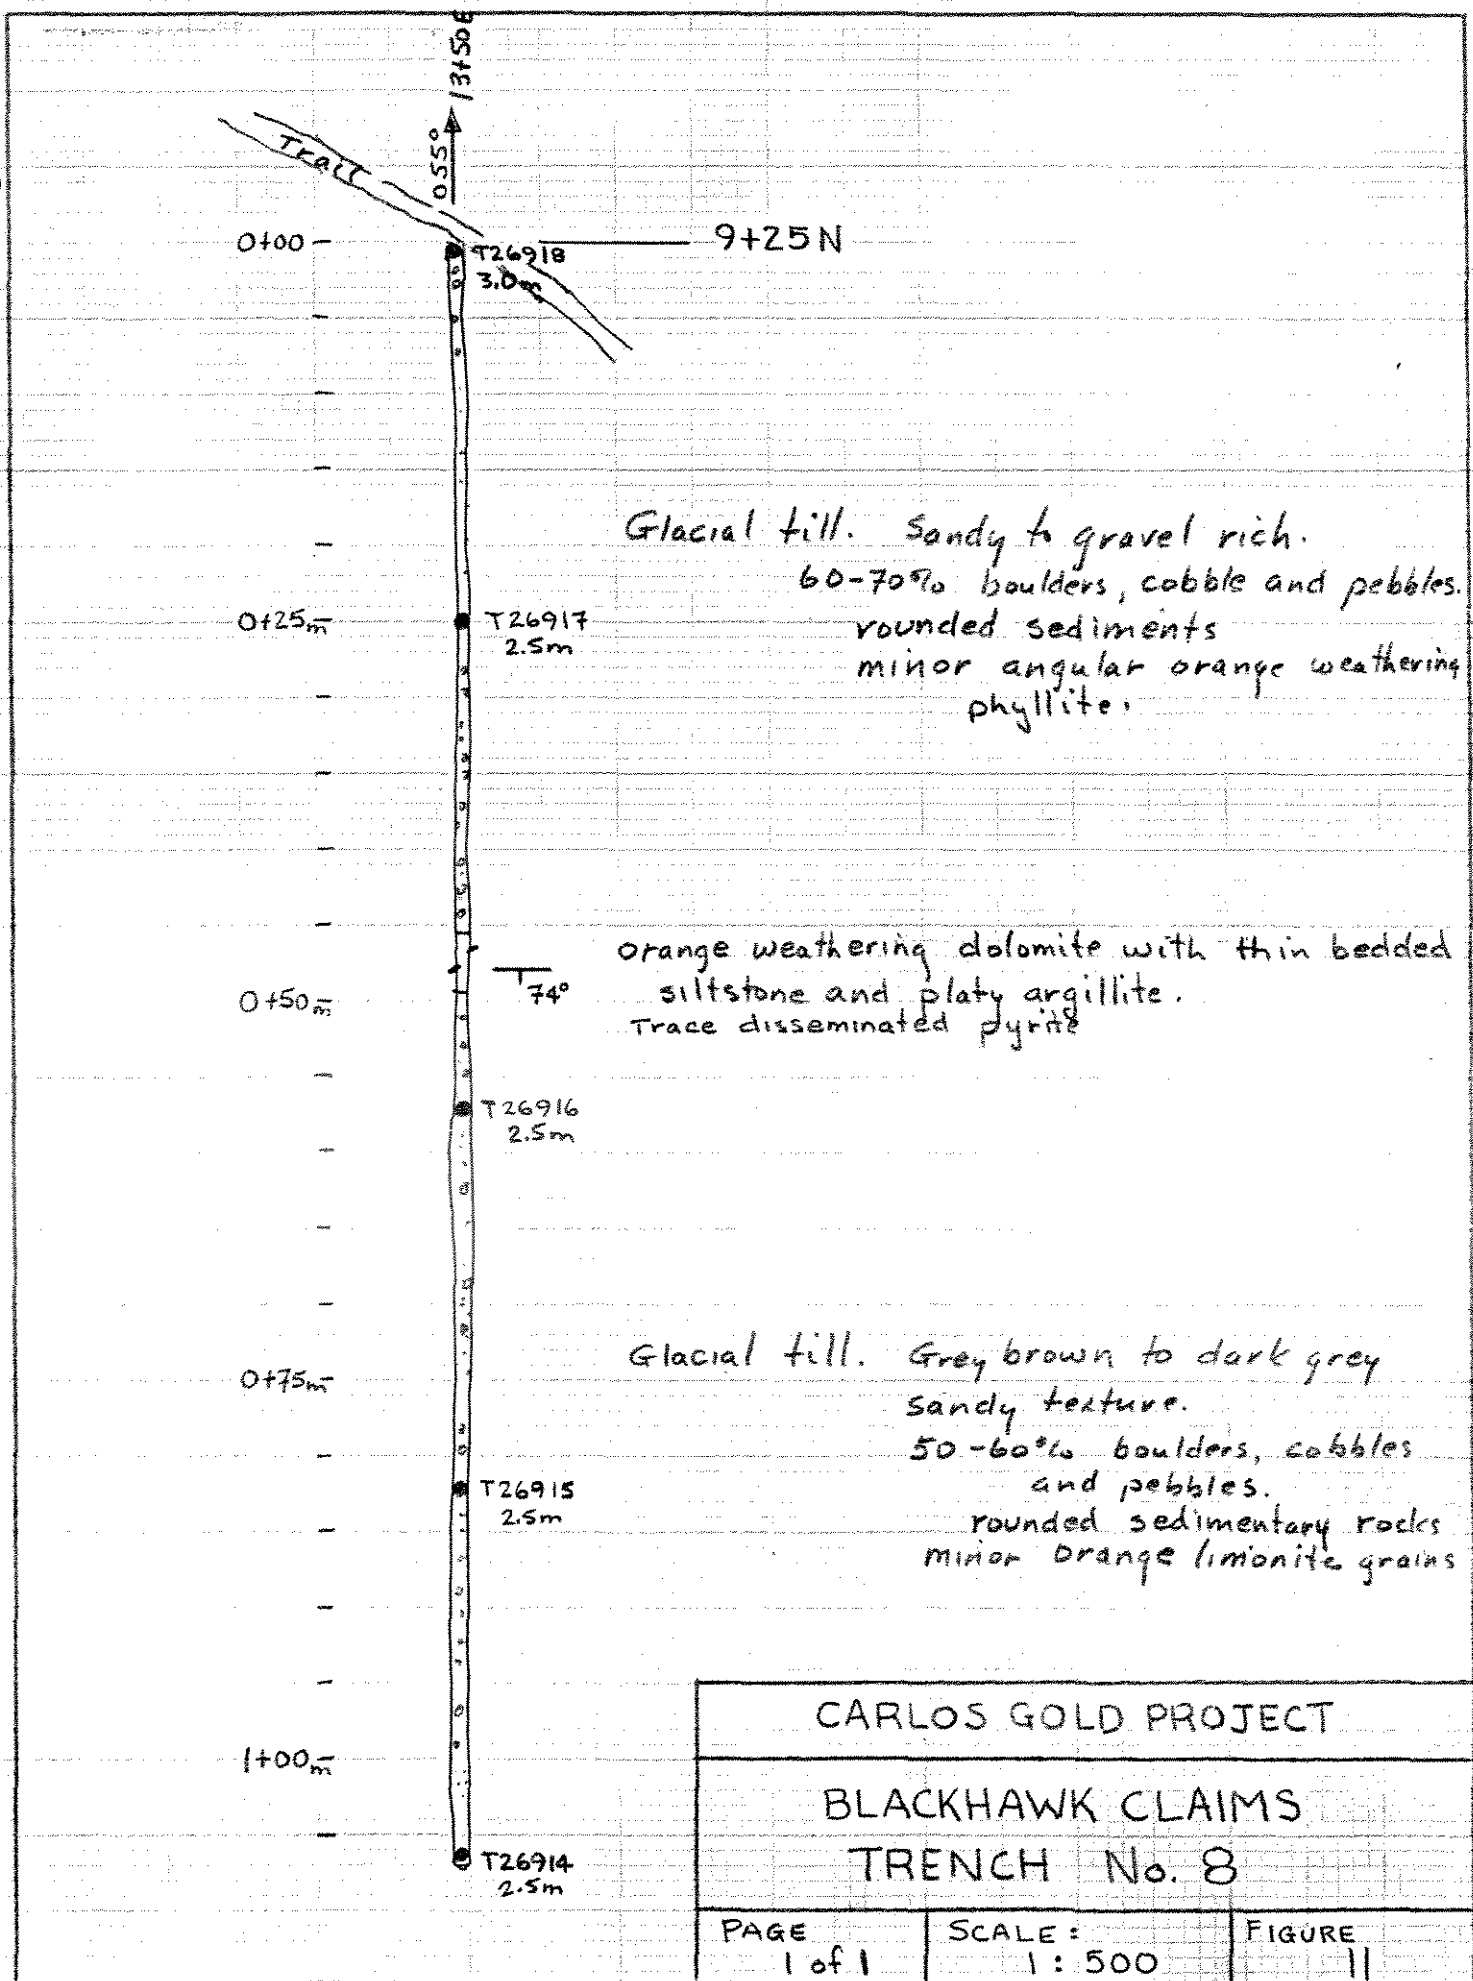 13+50E
055°
Trail
0+00
T26918
9+25N
3.0m
Glacial till. Sandy to gravel rich.
60-70% boulders, cobble and pebbles.
0+25m
T26917
2.5m
rounded sediments
minor angular orange weathering
phyllite.
orange weathering dolomite with thin bedded
siltstone and platy argillite.
Trace disseminated pyrite
74°
0+50m
T26916
2.5m
Glacial till. Grey brown to dark grey
0+75m
Sandy texture.
50-60% boulders, cobbles
and pebbles.
T26915
2.5m
rounded sedimentary rocks
minor orange limonite grains
CARLOS GOLD PROJECT
1+00m
BLACKHAWK CLAIMS
TRENCH No. 8
T26914
2.5m
PAGE
1 of 1
SCALE:
1:500
FIGURE
11